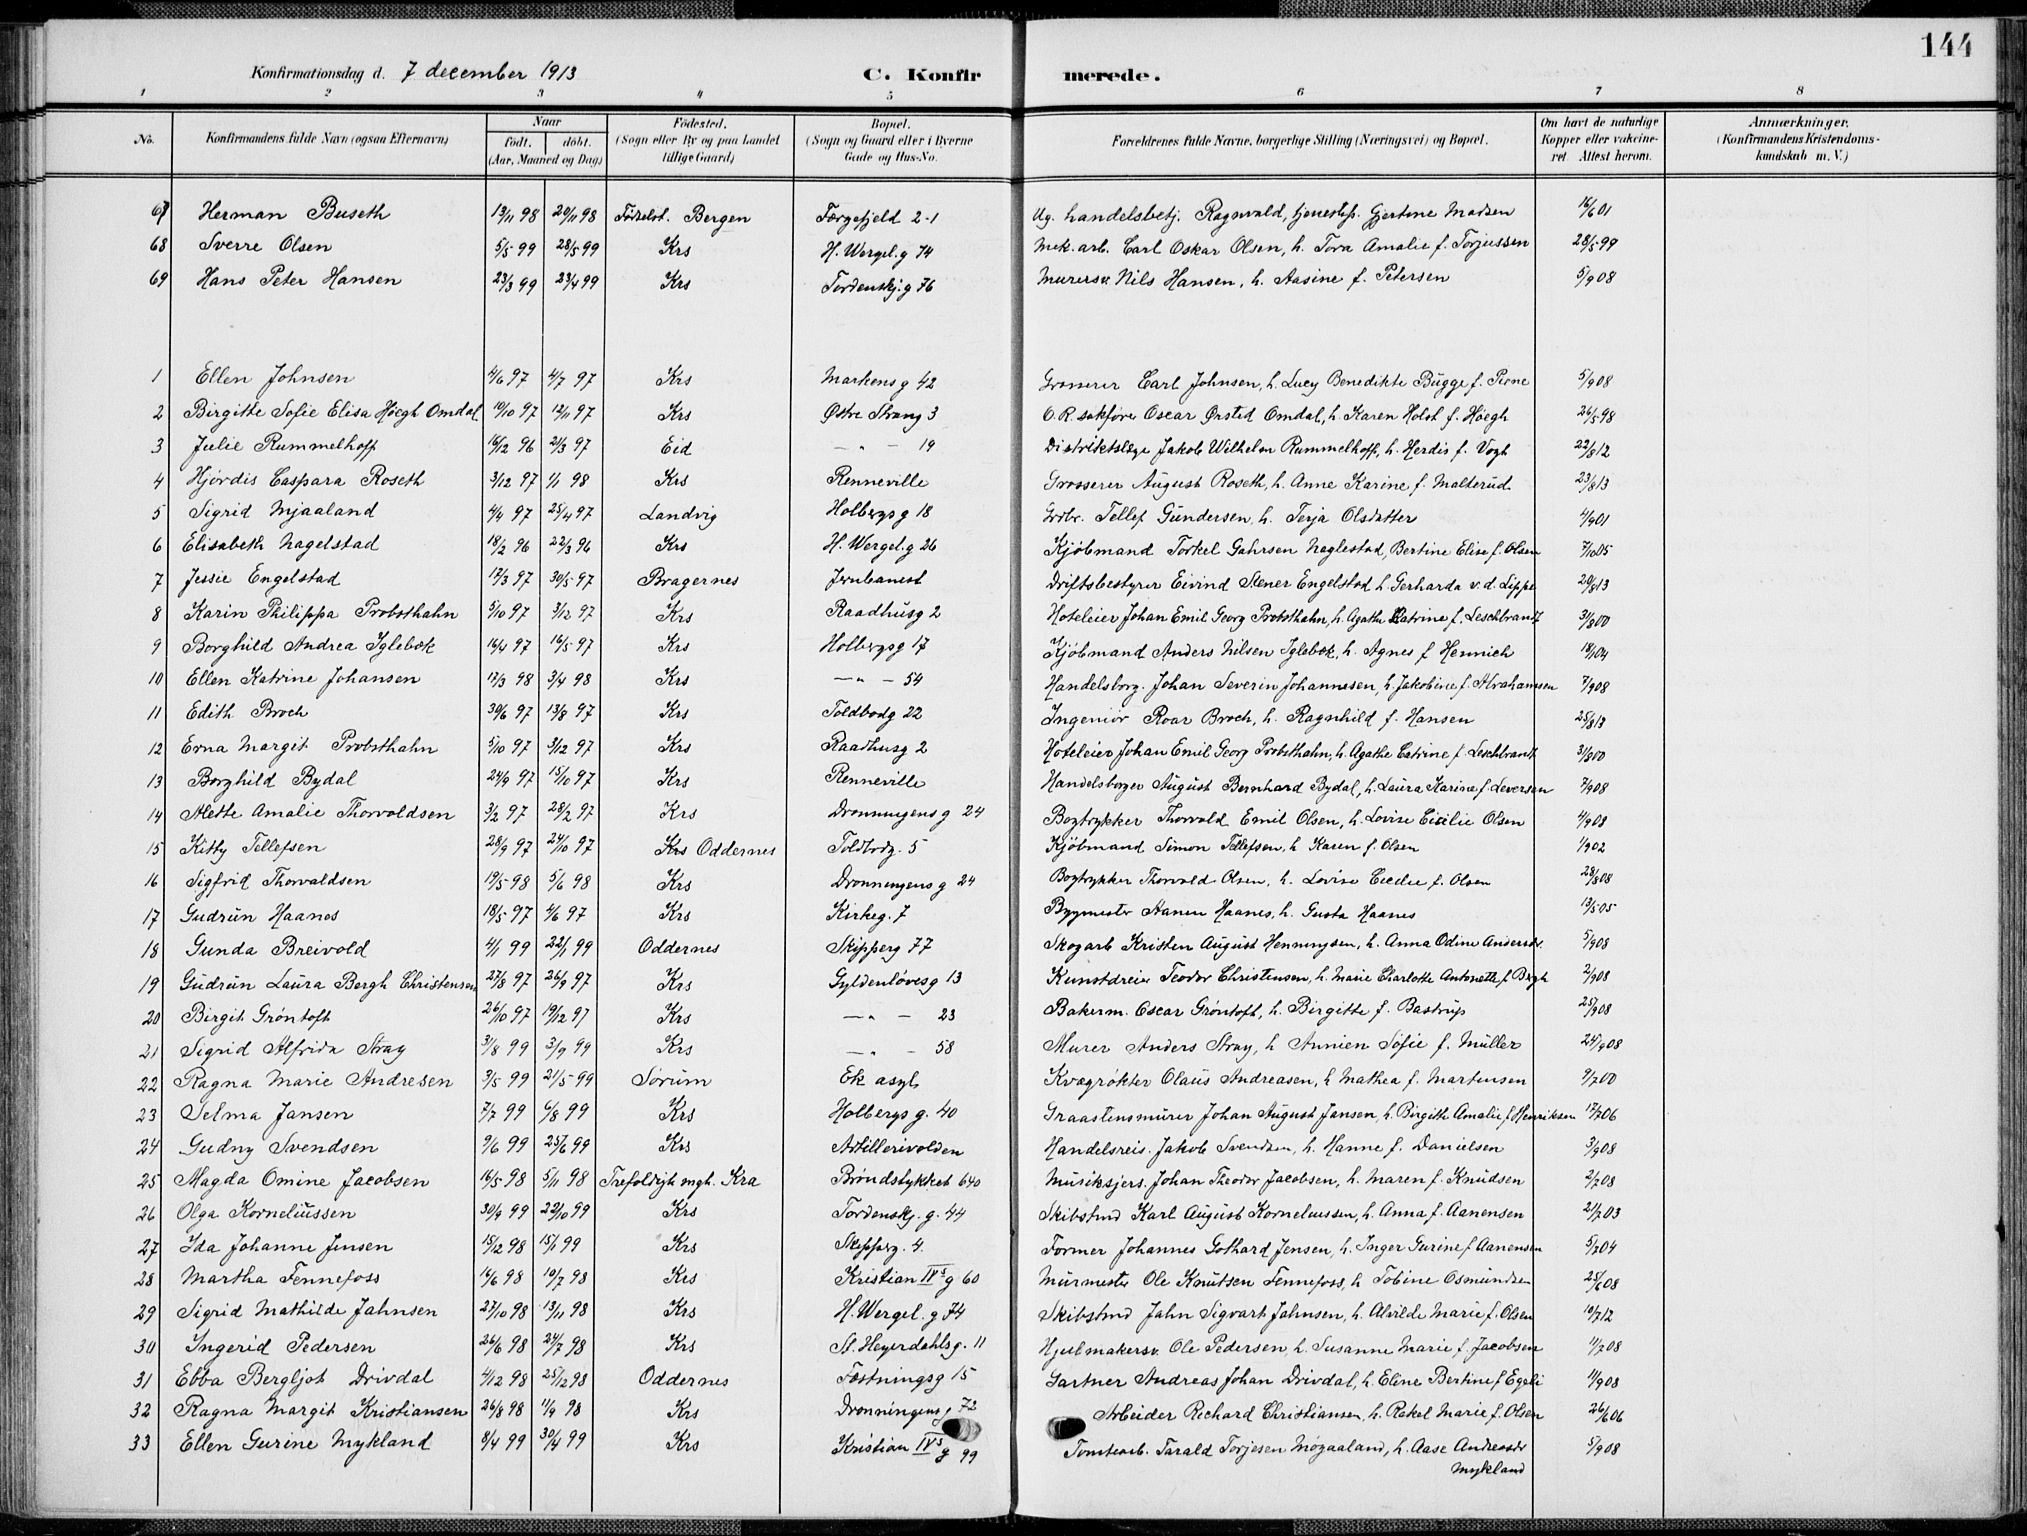 144
Konfirmationsdag d. 7 december 1913 C. Konfirmerede.
1 2 3 4 5 6 7 8
No. Konfirmandens fulde Navn (ogsaa Efternavn) Naar født. døbt. (Aar, Maaned og Dag) Fødested. (Sogn eller By og paa Landet tillige Gaard) Bopæl. (Sogn og Gaard eller i Byerne Gade og Hus-No. Forældrenes fulde Navne, borgerlige Stilling (Næringsvei) og Bopæl. Om havt de naturlige Kopper eller vakcineret. Attest herom. Anmærkninger. (Konfirmandens Kristendomskundskab m. V.)
67 Herman Buseth 13/11 98 20/11 98 Fødselst. Bergen Færgefjeld 2-1 Ug. handelsbetj. Ragnvald, tjenestep. Gjertine Madsen 16/6 01
68 Sverre Olsen 5/5 99 28/5 99 Krs H. Wergel. g 74 Mek. arb. Carl Oskar Olsen, h. Tora Amalie f. Torjussen 28/5 99
69 Hans Peter Hansen 23/3 99 23/4 99 Krs Tordenskj. g 76 Murersv. Nils Hansen, h. Aasine f. Petersen 5/9 08
1 Ellen Johnsen 4/6 97 4/7 97 Krs Markens g 42 Grosserer Carl Johnsen, h. Lucy Benedikte Bugge f. Pirne 5/9 08
2 Birgitte Sofie Elisa Høegh Omdal 19/10 97 12/11 97 Krs Østre Strang 3 O. R. sakføre Oscar Ørsted Omdal, h. Karen Holst f. Høegh 26/5 98
3 Julie Rummelhoff 16/12 96 21/3 97 Eid — " — 19 Distriktslæge Jakob Wilhelm Rummelhoff, h. Herdis f. Vogt 22/8 12
4 Hjørdis Caspara Roseth 3/12 97 1/1 98 Krs Renneville Grosserer August Roseth, h. Anne Karine f. Malterud 23/8 13
5 Sigrid Mjaaland 4/4 97 25/4 97 Landvig Holbergs g 18 Grbr. Tellef Gundersen, h. Terja Olsdatter 4/9 01
6 Elisabeth Nagelstad 18/2 96 22/3 96 Krs H. Wergel. g 26 Kjøbmand Torkel Gahrsen Neglestad, Bertine Elise f. Olsen 7/10 05
7 Jessie Engelstad 17/3 97 30/5 97 Bragernes Jernbanest Driftsbestyrer Eivind Stener Engelstad h. Gerharda v. d. Lippe 20/8 13
8 Karin Philippa Probsthahn 5/10 97 3/12 97 Krs Raadhusg 2 Hoteleier Johan Emil Georg Probsthahn, h. Agathe Katrine f. Leschbrandt 31/8 00
9 Borghild Andrea Iglebæk 16/4 97 16/5 97 Krs Holbergs g 17 Kjøbmand Anders Nilsen Iglebæk, h. Agnes f Hennich 18/1 04
10 Ellen Katrine Johansen 17/3 98 3/4 98 Krs — " — 54 Handelsborg. Johan Severin Johannesen, h. Jakobine f. Abrahamsen 7/9 08
11 Edith Broch 30/6 97 13/8 97 Krs Toldbodg 22 Ingeniør Roar Broch, h. Ragnhild f. Hansen 25/8 13
12 Erna Margit Probsthahn 5/10 97 3/12 97 Krs Raadhusg 2 Hoteleier Johan Emil Georg Probsthahn, h. Agathe Catrine f. Leschbrandt 31/8 00
13 Borghild Bydal 24/9 97 15/10 97 Krs Renneville Handelsborger August Bernhard Bydal, h. Laura Karine f. Leversen 7/9 08
14 Alette Amalie Thorvoldsen 3/2 97 28/2 97 Krs Dronningens g 24 Bogtrykker Thorvold Emil Olsen, h. Lovise Cicilie Olsen 4/9 08
15 Kitty Tellefsen 28/9 97 24/10 97 Krs Oddernes Toldbodg. 5 Kjøbmand Simon Tellefsen, h Karen f. Olsen 1/9 02
16 Sigfrid Thorvaldsen 19/5 98 5/6 98 Krs Dronningens g 24 Bogtrykker Thorvold Olsen, h. Lovise Cecilie f. Olsen 28/8 08
17 Gudrun Haanes 18/5 97 4/6 97 Krs Kirkeg. 7 Bygmester Aanen Haanes, h. Gusta Haanes 13/5 05
18 Gunda Breivold 4/1 99 22/1 99 Oddernes Skipperg 77 Skogarb Kristen August Henningsen, h. Anna Odine Andersdr. 5/9 08
19 Gudrun Laura Bergh Christensen 27/8 97 26/9 97 Krs Gyldenløvesg 13 Kunstdreier Teodor Christensen, h. Marie Charlotte Antonette f Bergh 2/9 08
20 Birgit Grøntoft 26/10 97 19/12 97 Krs — " — 23 Bakerm. Oscar Grøntoft, h. Birgitte f. Bastrup 25/9 08
21 Sigrid Alfrida Stray 31/8 99 3/9 99 Krs — " — 58 Murer Anders Stray, h Annien Sofie f. Müller 24/9 08
22 Ragna Marie Andresen 3/5 99 21/5 99 Sørum Ek asyl Kvægrøkter Olaus Andreasen, h Mathea f. Martensen 9/7 00
23 Selma Jansen 7/7 99 6/8 99 Krs Holbergs g. 40 Graastensmurer Johan August Jansen, h. Birgitte Amalie f Henriksen 17/7 06
24 Gudny Svendsen 9/6 99 25/6 99 Krs Artillerivolden Handelsreis. Jakob Svendsen, h. Hanne f. Danielsen 3/9 08
25 Magda Omine Jacobsen 16/5 98 5/11 98 Trefoldigh mgh. Kra Brøndstykket 640 Musiksjers. Johan Theodor Jacobsen, h. Maren f. Knudsen 2/7 08
26 Olga Korneliussen 30/9 99 22/10 99 Krs Tordenskj. g. 44 Skibstmd Karl August Korneliussen, h. Anna f. Aanensen 21/7 03
27 Ida Johanne Jensen 15/12 98 15/1 99 Krs Skipperg. 4. Former Johannes Gothard Jensen, h. Inger Gurine f Aanensen 5/7 04
28 Martha Fennefoss 14/6 98 10/7 98 Krs Kristian IVs g 60 Murmester Ole Knutsen Fennefoss, h Tobine Osmundsen 25/6 08
29 Sigrid Mathilde Jahnsen 27/10 98 13/11 98 Krs H. Wergel. g 74 Skibstmd Jahn Sigvart Jahnsen, h. Alvilde Marie f. Olsen 10/7 12
30 Ingerid Pedersen 26/6 98 24/7 98 Krs St. Heyerdahlsg. 11 Hjulmakersv. Ole Pedersen, h. Susanne Marie f. Jacobsen 11/7 08
31 Ebba Bergljot Drivdal 4/12 98 25/12 98 Oddernes Fæstningsg 15 Gartner Andreas Johan Drivdal, h. Eline Bertine f Egeli 11/9 08
32 Ragna Margit Kristiansen 26/8 98 11/9 98 Krs Dronningens g 72 Arbeider Richard Christiansen, h. Rakel Marie f. Olsen 26/6 06
33 Ellen Gurine Mykland 8/4 99 30/4 99 Krs Kristian IVs g 99 Tomtearb. Tarald Torjesen Møgaaland, h. Aase Andreasdr 5/9 08
Mykland